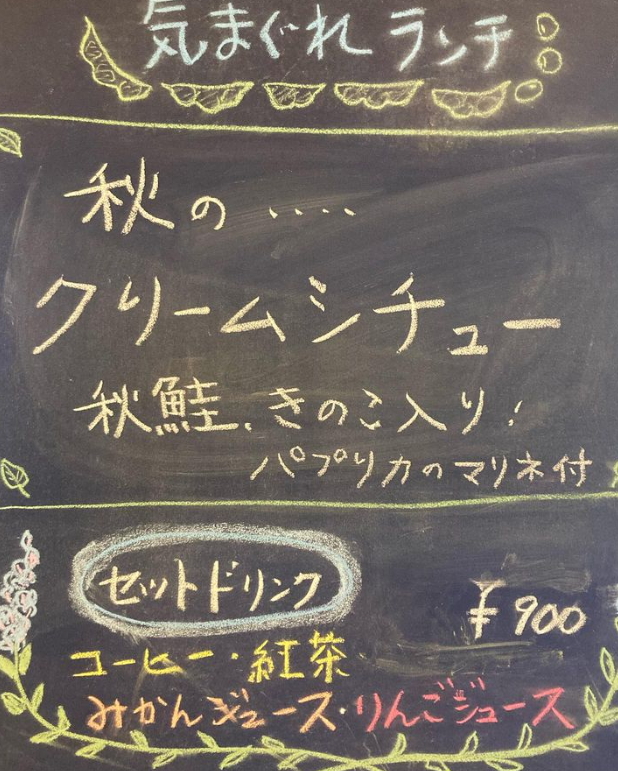 気まぐれ ランチ
秋の ‥‥
クリームシチュー
秋鮭、きのこ入り!
パプリカのマリネ付
セットドリンク
¥900
コーヒー・紅茶
みかんジュース・りんごジュース